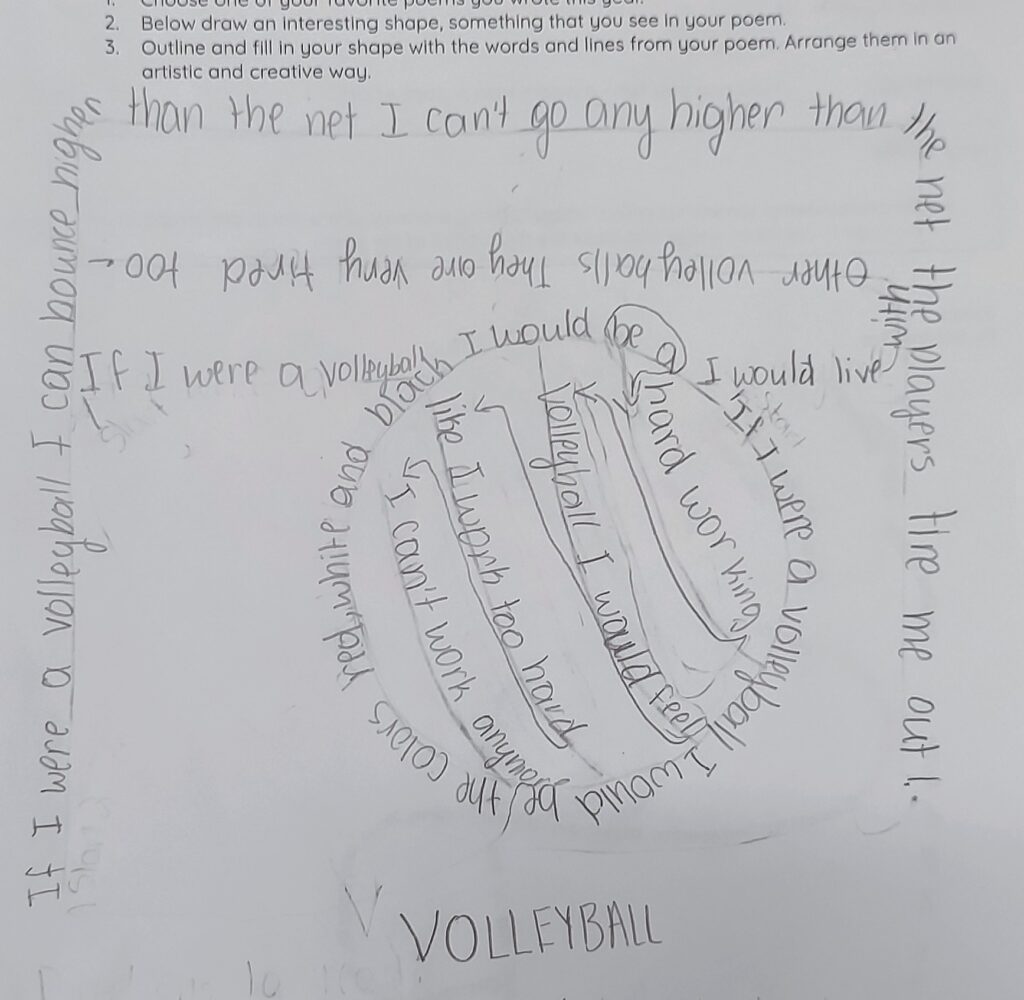 1. Choose one of your favorite poems you wrote this year.
2. Below draw an interesting shape, something that you see in your poem.
3. Outline and fill in your shape with the words and lines from your poem. Arrange them in an
artistic and creative way.
If I were a volleyball I can bounce higher
than the net I can't go any higher than
the net the players tire me out!
If I were a volleyball I would live
with
other volleyballs They are very tired too
If I were a volleyball I would
be the colors red, white and black
I would be a
hard working
volleyball I would feel
like I work too hard
I can't work anymore
start
start
start
VOLLEYBALL